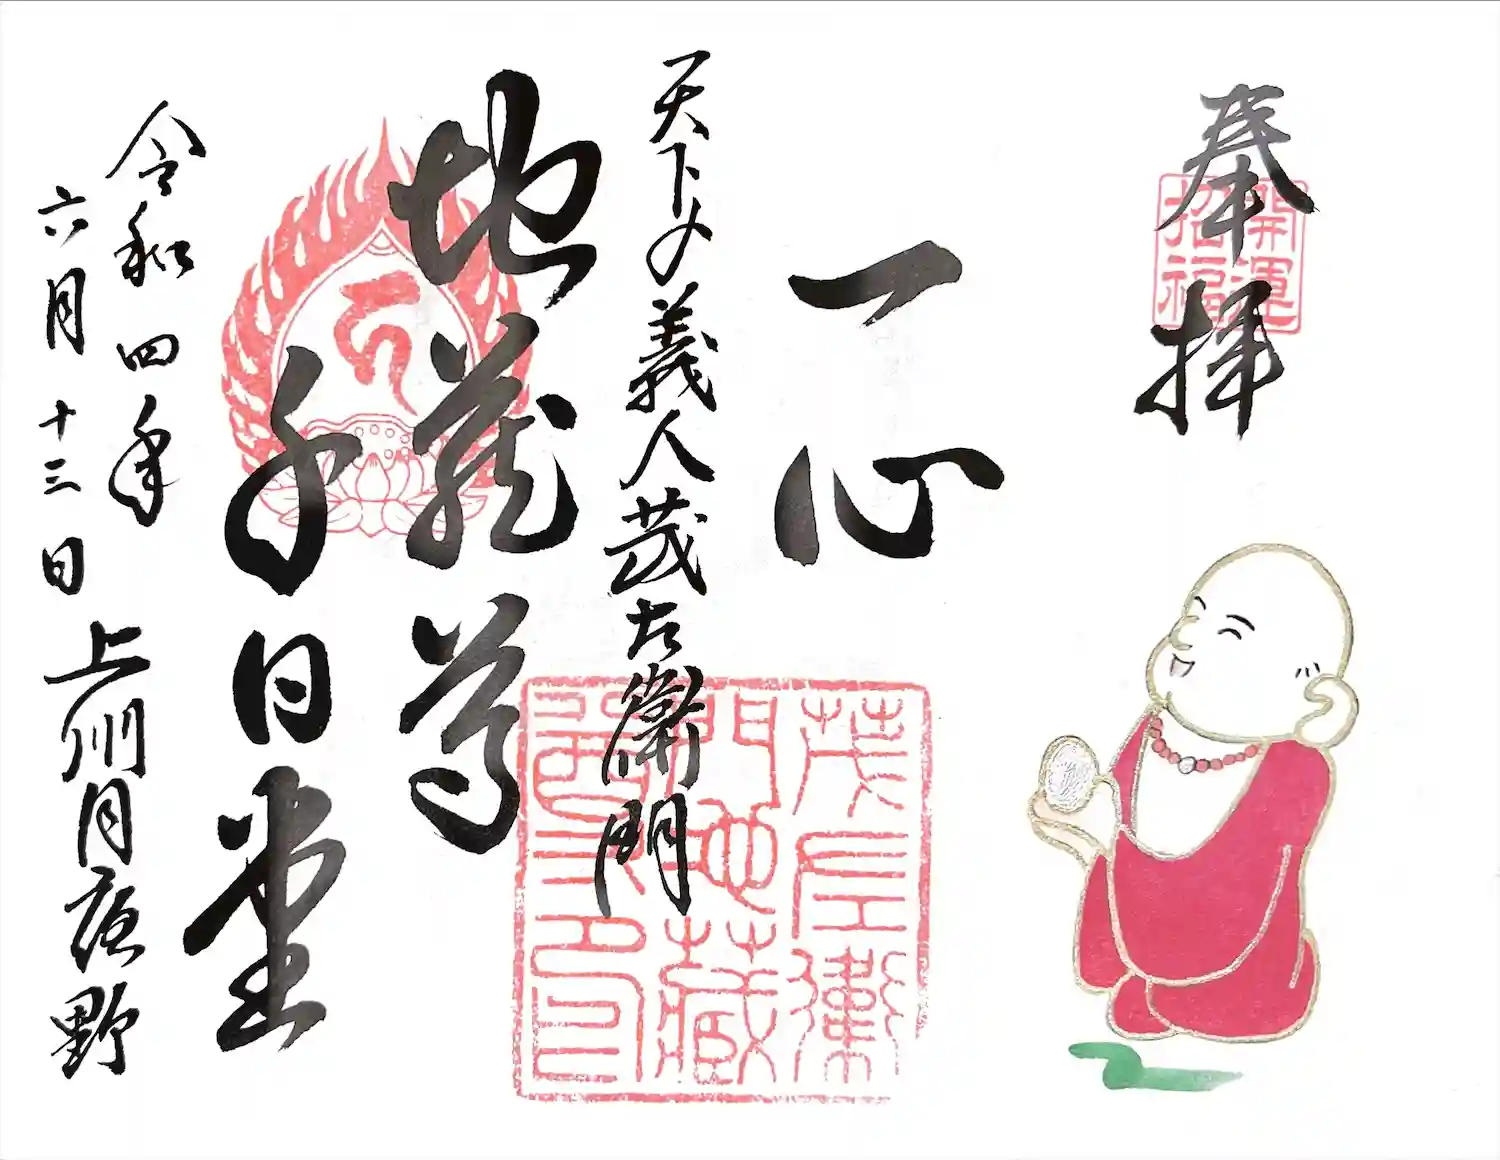 奉拝
開運
招福
一心
天下の義人茂左衛門
茂左衛
門地蔵
尊之印
地蔵尊
千日堂
令和四年
六月十三日
上州月夜野